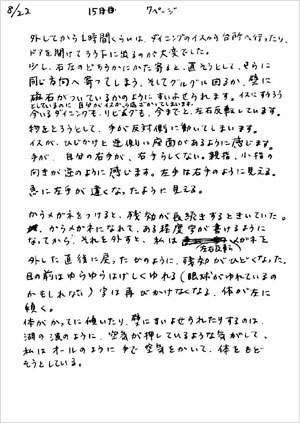 8/22 15日目 7ページ
外してから1時間くらいは、ダイニングのイスから台所へ行ったり、
ドアを開けてろう下に出るのが大変でした。
少し、右左のどちらかにかた寄ると、直そうとして、さらに
同じ方向へ寄ってしまう、そしてグルグル回るか、壁に
磁石がついているかのようにすいよせられます。イスにすわろう
としているのに、自分がイスから遠ざかってしまいます。
今いるダイニングも、リビングも、今までと、左右反転しています。
物をとろうとして、手が反対側に動いてしまいます。
イスが、ひじかけと逆側に座面があるように感じます。
手が、自分の右手が、右手らしくない。親指、小指の
向きが逆のように感じます。左手は右手のように見える。
急に左手が遠くなったように見える。
かうメガネをつけると、残効が長続きするときいていた。
かうメガネになれて、ある程度字が書けるように
なってから、それを外すと、私は 左右反転メガネを
外した直後に戻ったかのように、残効がひどくなった。
目の前はゆらゆらはげしくゆれる(眼球がゆれているの
かもしれない)字は再びかけなくなる、体が左に
傾く。
体がかってに傾いたり、壁にすいよせられたりするのは、
湖の波のように、空気が押しているような気がして、
私はオールのように手で空気をかいて、体をもど
そうとしている。